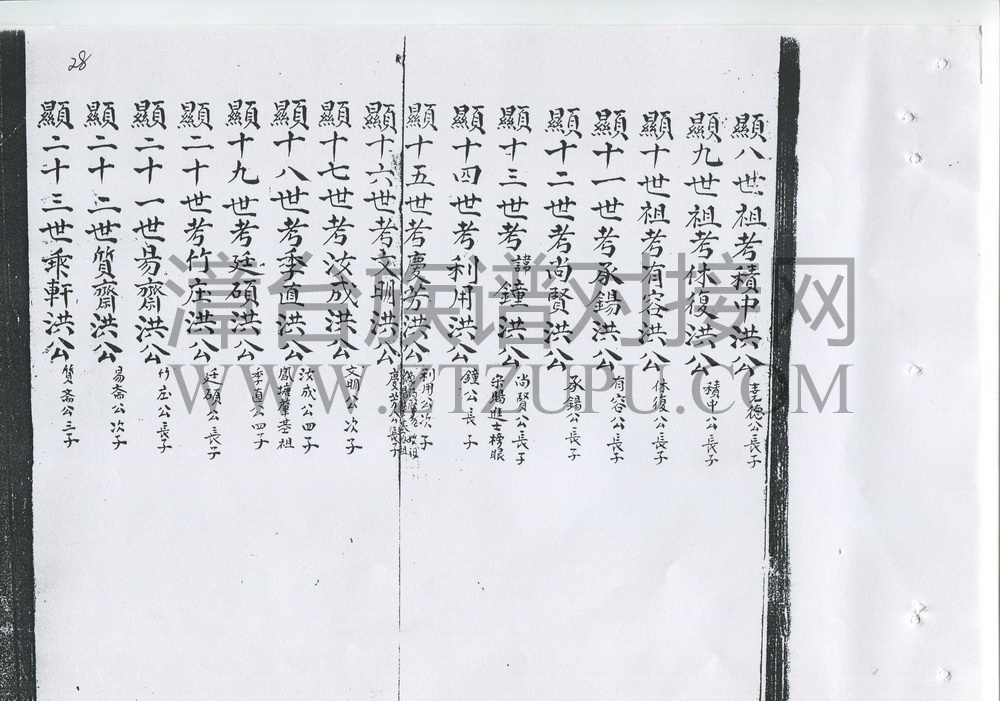 28
顯八世祖考積中洪公 德公長子
顯九世祖考休復洪公 積中公長子
顯十世祖考有容洪公 休復公長子
顯十一世考承錫洪公 有容公長子
顯十二世考尚賢洪公 承錫公長子
顯十三世考諱鐘洪公 尚賢公長子 宋賜進士榜眼
顯十四世考利用洪公 鐘公長子
顯十五世考慶芳洪公 利用公次子
顯十六世考文明洪公 慶芳公長子
顯十七世考汝成洪公 文明公次子
顯十八世考季直洪公 汝成公四子 鳳塘肇基祖
顯十九世考廷碩洪公 季直公四子
顯二十世考竹庄洪公 廷碩公長子
顯二十一世易齋洪公 竹庄公長子
顯二十二世質齋洪公 易斋公次子
顯二十三世乘軒洪公 質斋公三子
漳台族谱对接网
WWW.ZTZUPU.COM